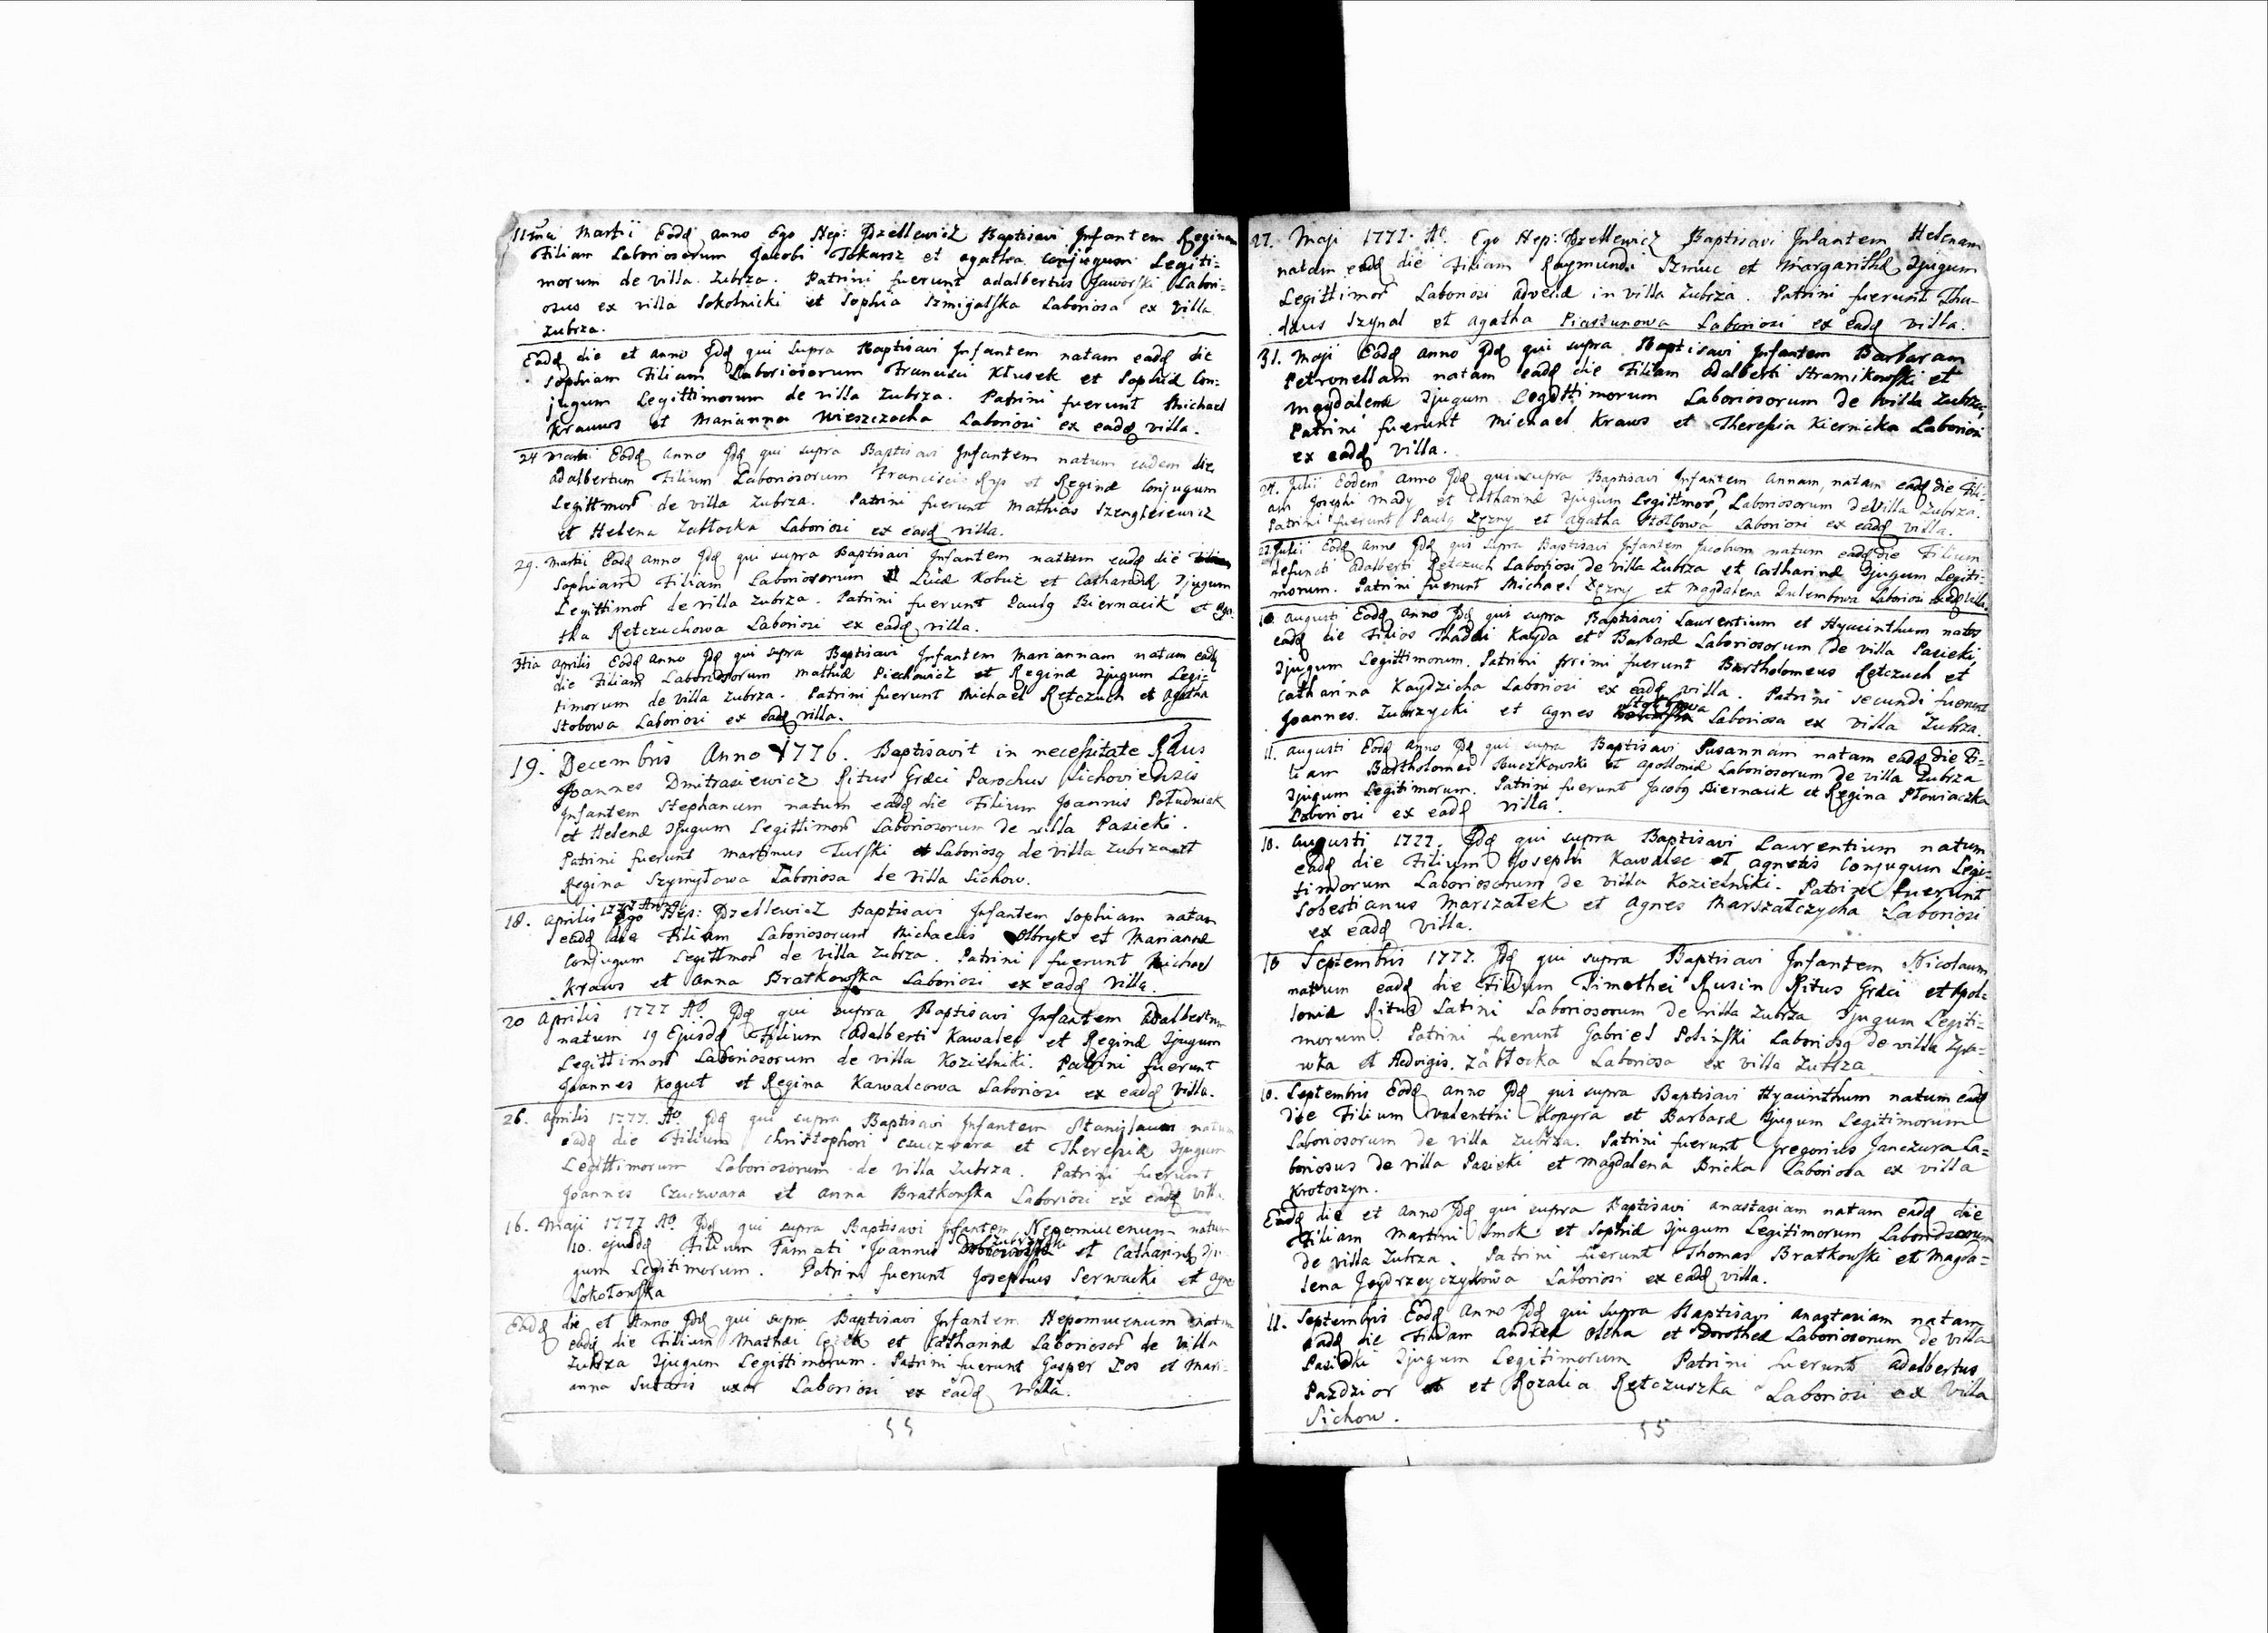 11ma Martii Eodē anno Ego Nep: Dzellewicz Baptisavi Infantem Reginam
Filiam Laboriosorum Jacobi Tokarsz et agatha Conjugum Legiti=
morum de villa Zubrza. Patrini fuerunt adalbertus Jaworski Labori=
osus ex villa Sokolniki et Sophia Szmigalska Laboriosa ex villa
Zubrza.
Eadē die et anno Idē qui supra Baptisavi Infantem natam eadē die
Sophiam Filiam Laboriosorum Francisci Kłusek et Sophiæ Con=
jugum Legittimorum de villa Zubrza. Patrini fuerunt Michael
Krauws et Marianna Wieszczocha Laboriosi ex eadē villa.
24 Martii Eodē anno Idē qui supra Baptisavi Infantem natum eadem die
adalbertum Filium Laboriosorum Francisci Ryś et Reginæ Conjugum
Legittmor̃ de villa Zubrza. Patrini fuerunt Mathias Szenglerewicz
et Helena Zabłocka Laboriosi ex eadē villa.
29. Martii Eodē Anno Idē qui supra Baptisavi Infantem natam eadē die
Sophiam Filiam Laboriosorum Lucæ Kobuz et Catharinæ Cjugum
Legittimor̃ de villa Zubrza. Patrini fuerunt Paulg Biernacik et Aga=
tha Retczuchowa Laboriosi ex eadē villa.
3tia aprilis Eodē Anno Idē qui supra Baptisavi Infantem Mariannam natam eadē
die Filiam Laboriosorum Mathiæ Piechowicz et Reginæ Cjugum Legi=
timorum de villa Zubrza. Patrini fuerunt Michael Retczuch et Agatha
Stobowa Laboriosi ex eadē villa.
19. Decembris Anno 1776. Baptisavit in necessitate Rdus
Joannes Dmitrasiewicz Ritus Græci Parochus Sichoviensis
Infantem Stephanum natum eadē die Filium Joannis Południak
et Helenæ Cjugum Legittimor̃ Laboriosorum de villa Pasieki.
Patrini fuerunt Martinus Turski Laboriosg de villa Zubrza et
Regina Szymyłowa Laboriosa de villa Sichow.
18. aprilis 1777 Anno Ego Nep: Dzellewicz Baptisavi Infantem Sophiam natam
eadē die Filiam Laboriosorum Michaelis Olbryk et Mariannæ
Conjugum Legittmor̃ de villa Zubrza. Patrini fuerunt Michael
Kraws et Anna Bratkowska Laboriosi ex eadē villa.
20 Aprilis 1777 Ao. Idē qui supra Baptisavi Infantem adalbertum
natum 19 Ejusdē Filium Adalberti Kawalec et Reginæ Cjugum
Legittimor̃ Laboriosorum de villa Kozielniki. Patrini fuerunt
Joannes Kogut et Regina Kawalcowa Laboriosi ex eadē villa.
26. aprilis 1777. Ao. Idē qui supra Baptisavi Infantem Stanislaum natum
eadē die Filium Christophori Czuczwara et Theresiæ Cjugum
Legittimorum Laboriosorum de villa Zubrza. Patrini fuerunt
Joannes Czuczwara et Anna Bratkowska Laboriosi ex eadē villa.
16. Maji 1777 Ao. Idē qui supra Baptisavi Infantem Nepomucenum natum
10. ejusdē Filium Famati Joannis Zubrzycki et Catharinæ Cju=
gum Legitimorum. Patrini fuerunt Josephus Serwacki et Agnes
Sokołowska
Eadē die et Anno Idē qui supra Baptisavi Infantem Nepomucenum natum
eadē die Filium Mathæi et Catharinæ Laboriosor̃ de villa
Zubrza Cjugum Legittimorum. Patrini fuerunt Gasper Dos et Mari=
anna Sutoris uxor Laboriosi ex eadē villa.
55
27. Maji 1777. Ao. Ego Nep: Dzellewicz Baptisavi Infantem Helenam
natam eadē die Filiam Raymundi et Margarithæ Cjugum
Legittimor̃ Laboriosi advenæ in villa Zubrza. Patrini fuerunt Tha=
dæus Szynal et Agatha Piastunowa Laboriosi ex eadē villa.
31. Maji Eodē anno Idē qui supra Baptisavi Infantem Barbaram
Petronellam natam eadē die Filiam Adalberti Stramikowski et
Magdalenæ Cjugum Legittimorum Laboriosorum de villa Zubrza,
Patrini fuerunt Michael Kraws et Theresia Kiernicka Laboriosi
ex eadē villa.
24. Julii Eodem Anno Idē qui supra Baptisavi Infantem Annam, natam eadē die Fili=
am Josephi Mady et Catharinæ Cjugum Legittmor̃, Laboriosorum de Villa Zubrza.
Patrini fuerunt Paulg Zyzny et agatha Stołbowa Laboriosi ex eadē villa.
27. Julii Eodē Anno Idē qui supra Baptisavi Infantem Jacobum natum eadē die Filium
defuncti Adalberti Retczuch Laboriosi de villa Zubrza et Catharinæ Cjugum Legiti=
morum. Patrini fuerunt Michael Zyzny et Magdalena Dulembowa Laboriosi ex eadē villa.
10. augusti Eodē Anno Idē qui supra Baptisavi Laurentium et Hyacinthum natos
eadē die Filios Thadæi Kayda et Barbaræ Laboriosorum de villa Pasieki
Cjugum Legittimorum. Patrini primi fuerunt Bartholomeus Retczuch et
Catharina Kaydzicha Laboriosi ex eadē villa. Patrini secundi fuerunt
Joannes Zubrzycki et Agnes Stołbowa Laboriosa ex villa Zubrza.
11. augusti Eodē Anno Idē qui supra Baptisavi Susannam natam eadē die Fi=
liam Bartholomei Buczkowski et Apolloniæ Laboriosorum de villa Zubrza
Cjugum Legitimorum. Patrini fuerunt Jacobg Biernacik et Regina Płowiaczka
Laboriosi ex eadē villa.
10. Augusti 1777. Idē qui supra Baptisavi Laurentium natum
eadē die Filium Josephi Kawalec et agnetis Conjugum Legi=
timorum Laboriosorum de villa Kozielniki. Patrini fuerunt
Sobestianus Marszałek et Agnes Marszałczycha Laboriosi
ex eadē villa.
10 Septembris 1777. Idē qui supra Baptisavi Infantem Nicolaum
natum eadē die Filium Timothei Rusin Ritus Græci et Apol=
loniæ Ritus Latini Laboriosorum de villa Zubrza Cjugum Legiti=
morum. Patrini fuerunt Gabriel Polinski Laboriosg de villa Zyra=
wka et Hedvigis Zabłocka Laboriosa ex villa Zubrza.
10. Septembris Eodē anno Idē qui supra Baptisavi Hyacinthum natum eadē
die Filium Valentini Kopyra et Barbaræ Cjugum Legitimorum
Laboriosorum de villa Zubrza. Patrini fuerunt Gregorius Janczura La=
boriosus de villa Pasieki et Magdalena Bricka Laboriosa ex villa
Krotoszyn.
Eadē die et anno Idē qui supra Baptisavi anastasiam natam eadē die
Filiam Martini Smok et Sophiæ Cjugum Legitimorum Laboriosorum
de villa Zubrza. Patrini fuerunt Thomas Bratkowski et Magda=
lena Jędrzeyczykowa Laboriosi ex eadē villa.
11. Septembris Eodē Anno Idē qui supra Baptisavi anastasiam natam
eadē die Filiam Andreæ Olcha et Dorotheæ Laboriosorum de villa
Pasieki Cjugum Legitimorum Patrini fuerunt adalbertus
Pazdzior et Rozalia Retczuszka Laboriosi ex villa
Sichow.
55